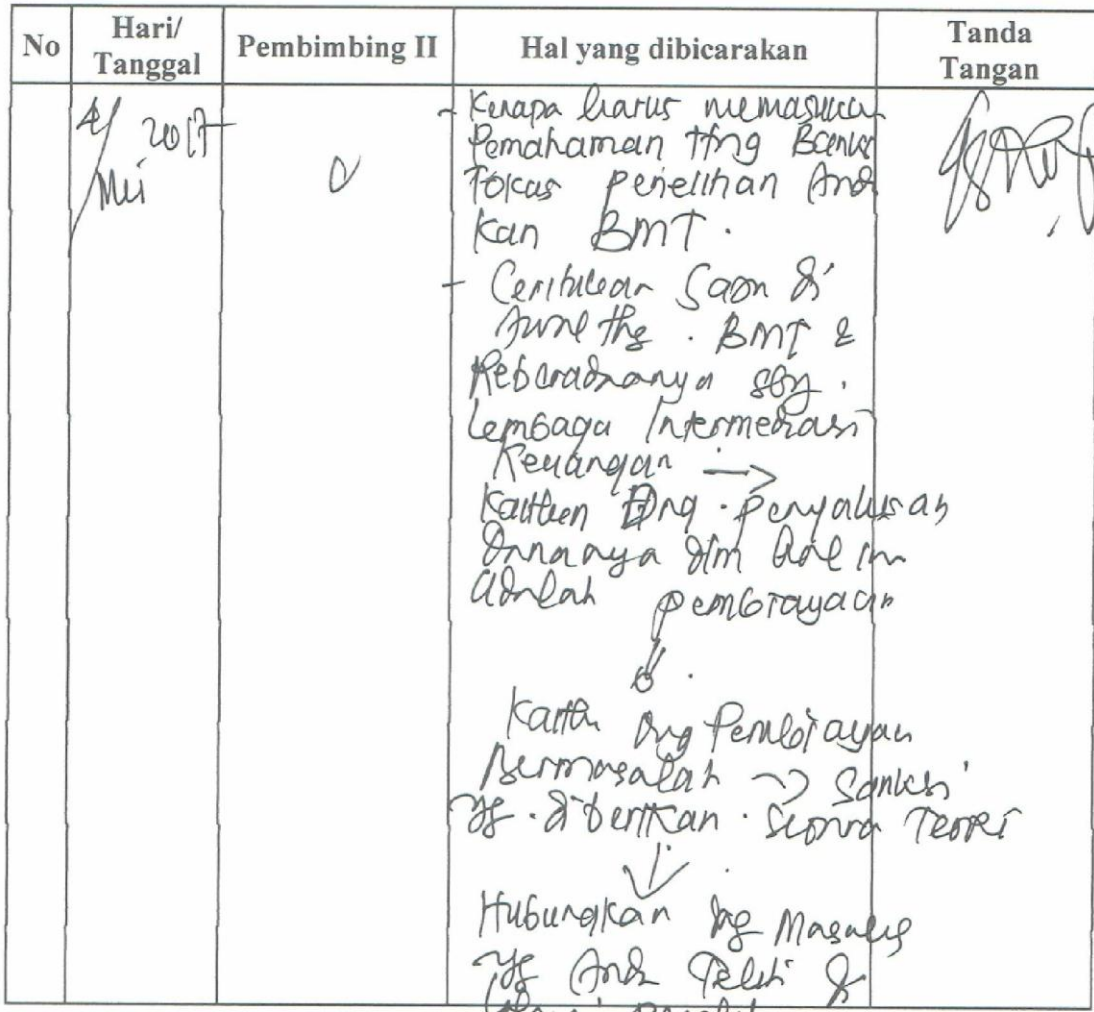 No Hari/ Tanggal Pembimbing II Hal yang dibicarakan Tanda Tangan
2017
Mei
- Kenapa harus memasukan
Pemahaman ttng Bank
Fokus penelitian And
kan BMT.
- Ceritakan saja di
awal ttg. BMT &
Keberadaanya sbg.
Lembaga Intermediasi
Keuangan →
Kaitkan dng. penyaluran
Dananya dlm hal ini
adalah pembiayaan
Kaitkn dng Pembiayaan
Bermasalah → Sanksi
yg. diberikan. secara Teori
Hubungkan dg Masalah
yg Anda Teliti di